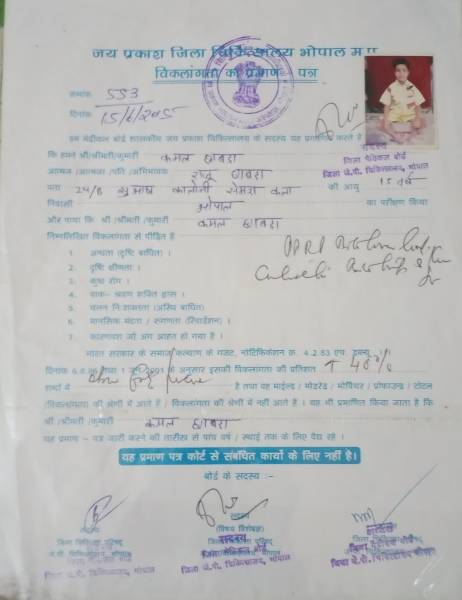 जय प्रकाश जिला चिकित्सालय भोपाल म.प्र.
विकलांगता का प्रमाण पत्र
क्रमांक 553
दिनांक 15/6/2005
हम मेडीकल बोर्ड शासकीय जय प्रकाश चिकित्सालय के सदस्य यह प्रमाणित करते हैं
कि हमने श्री/श्रीमती/कुमारी कमल छाबरा
सदस्य
जिला मेडिकल बोर्ड
जिला जे.पी. चिकित्सालय, भोपाल
आत्मज /आत्मजा /पति /अभिभावक छाबरा
पता 24/B सुभाष कालोनी सेमरा कला की आयु 15 वर्ष
निवासी भोपाल का परीक्षण किया
और पाया कि श्री /श्रीमती /कुमारी कमल छाबरा
निम्नलिखित विकलांगता से पीड़ित है
1. अन्धता (दृष्टि बाधित) ।
2. दृष्टि क्षीणता ।
3. कुष्ठ रोग ।
4. वाक- श्रवण शक्ति ह्रास ।
5. चलन निःशक्तता (अस्थि बाधित)
6. मानसिक मंदता / रुग्णता (रिटार्डेशन) ।
7. कारणवश जो अंग आहत हो गया है ।
भारत सरकार के समाज कल्याण के गजट, नोटिफिकेशन क्र. 4.2.83 एच. डब्ल्यू.
दिनांक 6.8.86 तथा 1 जून 2001 के अनुसार इसकी विकलांगता की प्रतिशत
शब्दों में है तथा वह माईल्ड / मोडरेड / सीवियर / प्रोफाउन्ड / टोटल
(विकलांगता) की श्रेणी में आते हैं / विकलांगता की श्रेणी में नहीं आते हैं । यह भी प्रमाणित किया जाता है कि
श्री /श्रीमती /कुमारी कमल छाबरा
यह प्रमाण - पत्र जारी करने की तारीख से पांच वर्ष / स्थाई तक के लिए वैध रहे ।
यह प्रमाण पत्र कोर्ट से संबंधित कार्यो के लिए नहीं है।
बोर्ड के सदस्य :-
सदस्य
(विषय विशेषज्ञ)
सदस्य
जिला मेडिकल बोर्ड
जिला जे.पी. चिकित्सालय, भोपाल